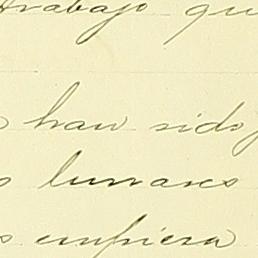 trabajo qu
han sido
lunares
empieza